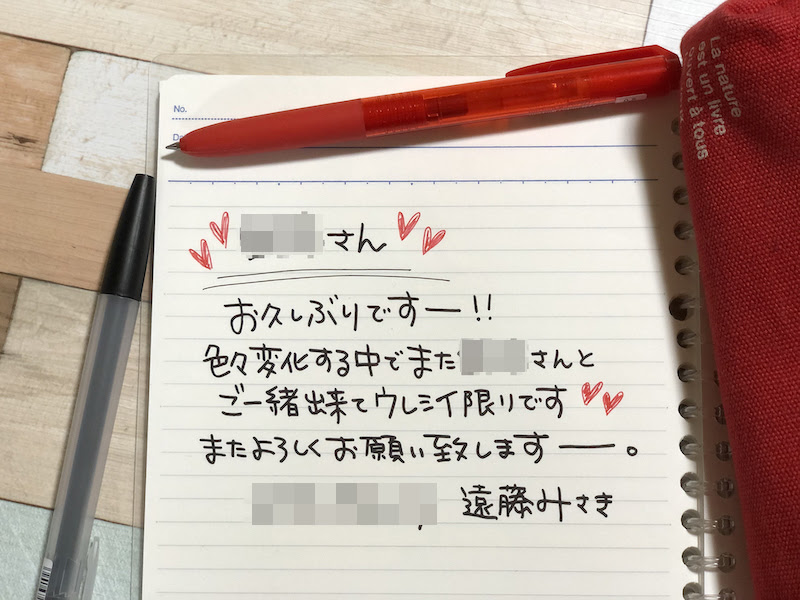 No.
さん
お久しぶりですー!!
色々変化する中でまた
さんと
ご一緒出来てウレシイ限りです
またよろしくお願い致しますー。
遠藤みさき
La nature
est un livre
ouvert à tous